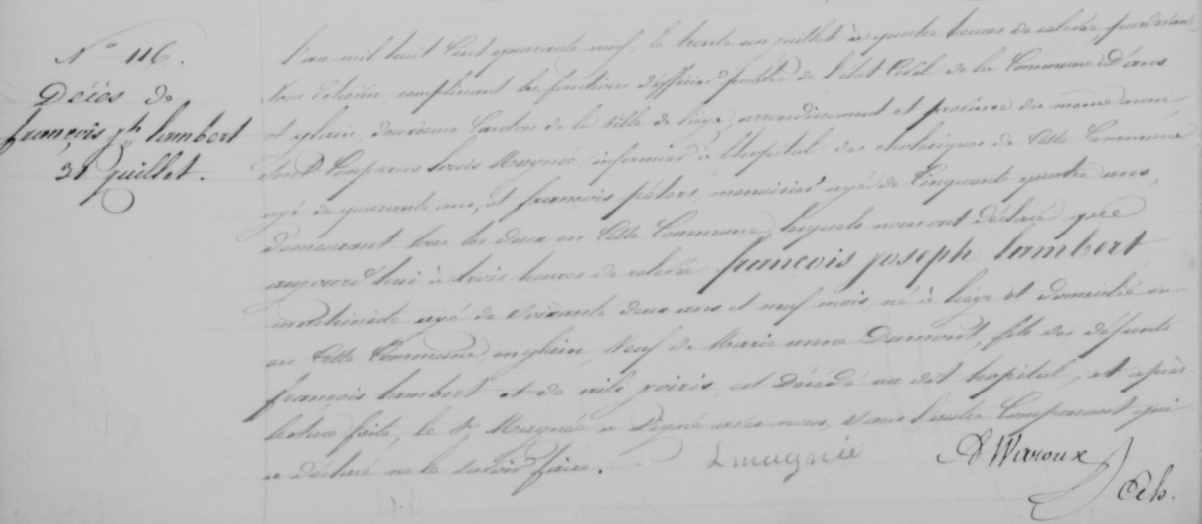 N° 116.
Décès de
françois jph lambert
31 juillet.
L'an mil huit Cent quarante neuf, le trente un juillet à quatre heures de relevée, pardevant
Nous échevin remplissant les fonctions d'officier public de l'état Civil de la Commune D'ans
et glain, deuxième Canton de la Ville de liége, arrondissement et province du même nom
Sont Comparus louis Magnée infirmier à l'hopital des cholériques de Cette Commune
agé de quarante ans, et françois péters, menuisier agé de Cinquante quatre ans,
demeurant tous les deux en Cette Commune, lesquels nous ont déclaré que
aujourd'hui à trois heures de relevée françois joseph lambert
machiniste agé de Soixante deux ans et neuf mois, né à liége et domicilié en
en Cette Commune, englain, Veuf de Marie anne Dumont, fils des défunts
françois lambert et de, est Décédé au dit hopital, et après
lecture faite, le Sr Magnée a Signé avec nous, et non l'autre Comparant qui
a déclaré ne le savoir faire.
L magnée
D Waroux
Ech.